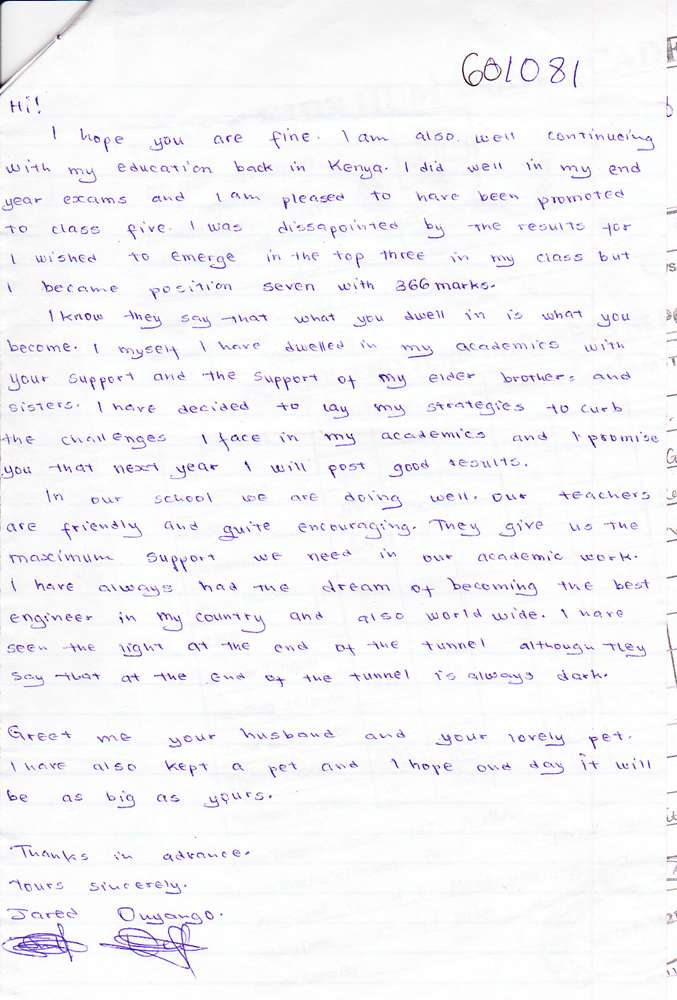 601081
Hi!
I hope you are fine. I am also well continueing
with my education back in Kenya. I did well in my end
year exams and I am pleased to have been promoted
to class five. I was dissapointed by the results for
I wished to emerge in the top three in my class but
I became position seven with 366 marks.
I know they say that what you dwell in is what you
become. I myself I have dwelled in my academics with
your support and the support of my elder brothers and
sisters. I have decided to lay my strategies to curb
the challenges I face in my academics and I promise
you that next year I will post good results.
In our school we are doing well. Our teachers
are friendly and quite encouraging. They give us the
maximum support we need in our academic work.
I have always had the dream of becoming the best
engineer in my country and also world wide. I have
seen the light at the end of the tunnel although they
say that at the end of the tunnel is always dark.
Greet me your husband and your lovely pet.
I have also kept a pet and I hope one day it will
be as big as yours.
Thanks in advance.
Yours sincerely.
Jared Onyango.